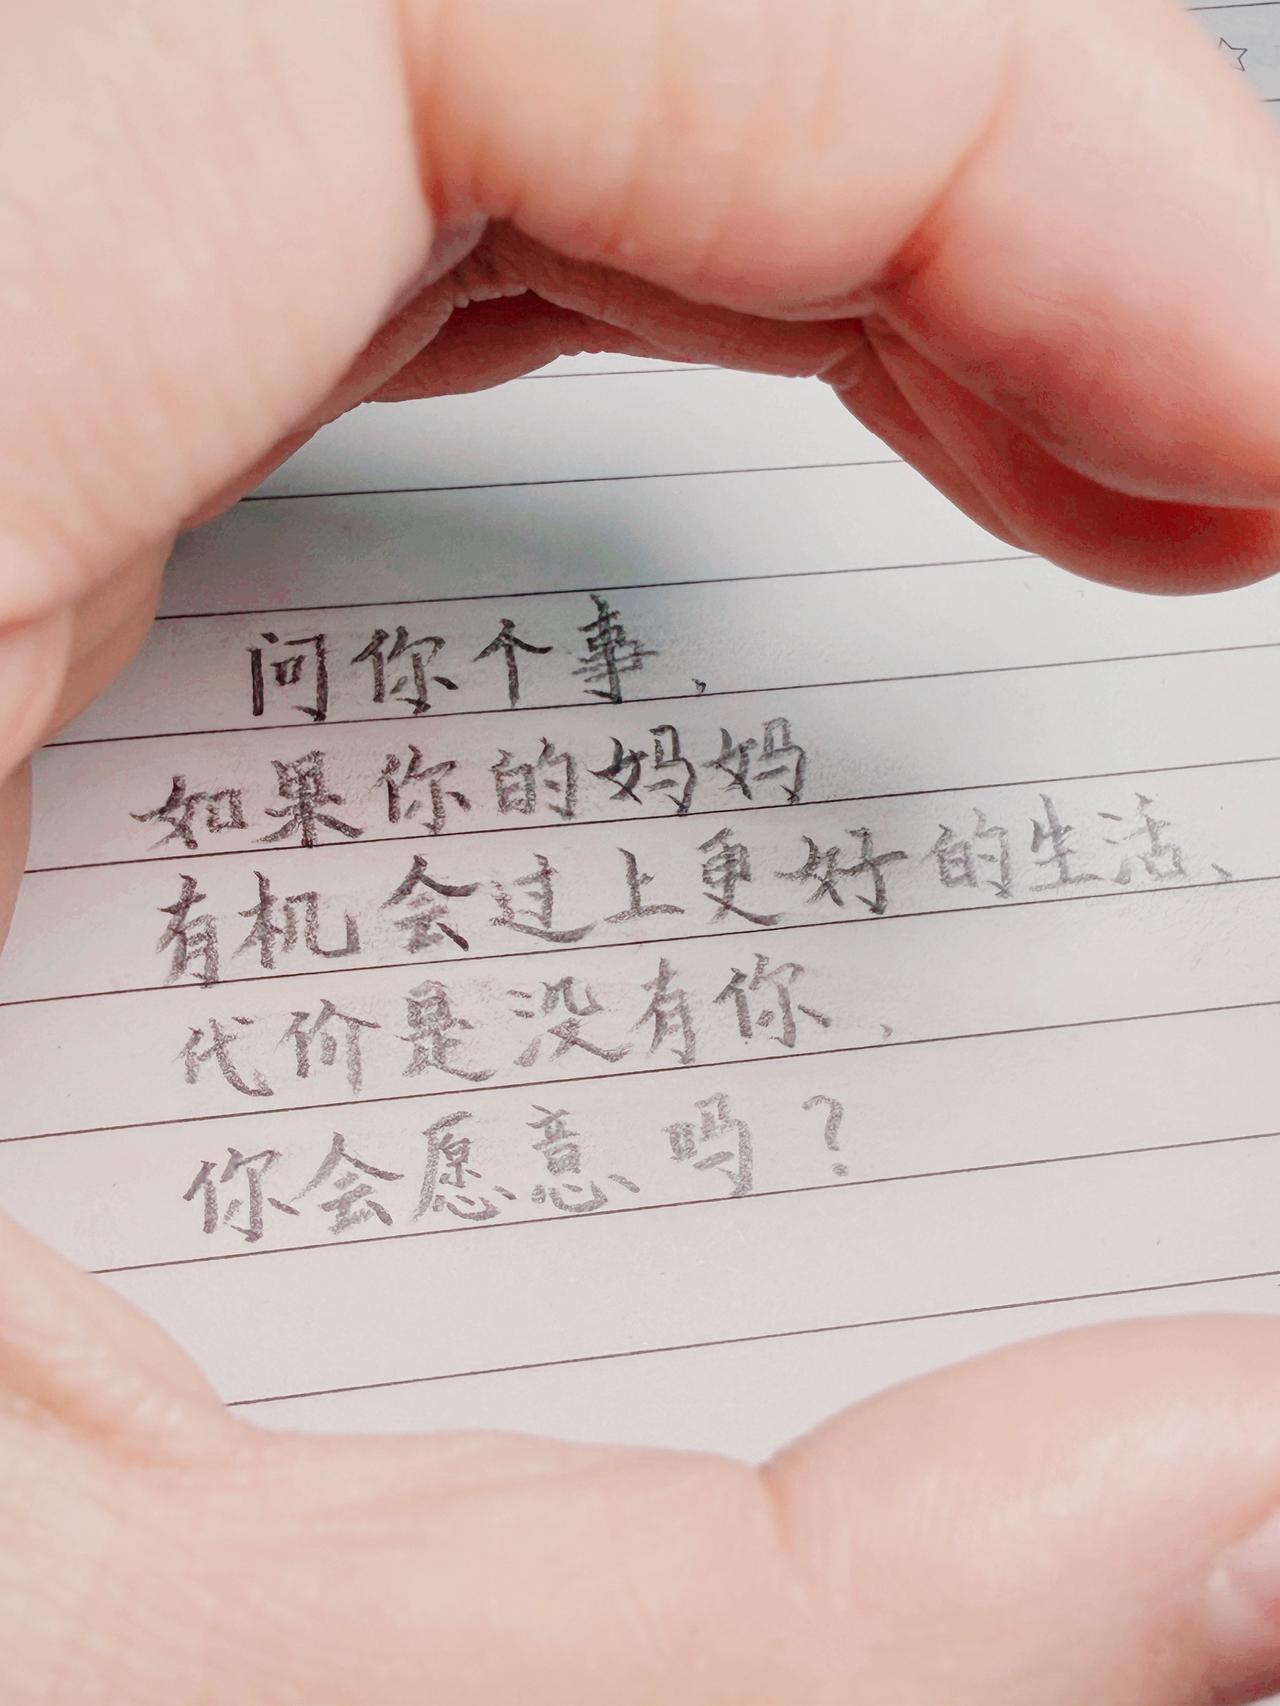 问你个事、
如果你的妈妈
有机会过上更好的生活、
代价是没有你、
你会愿意吗？